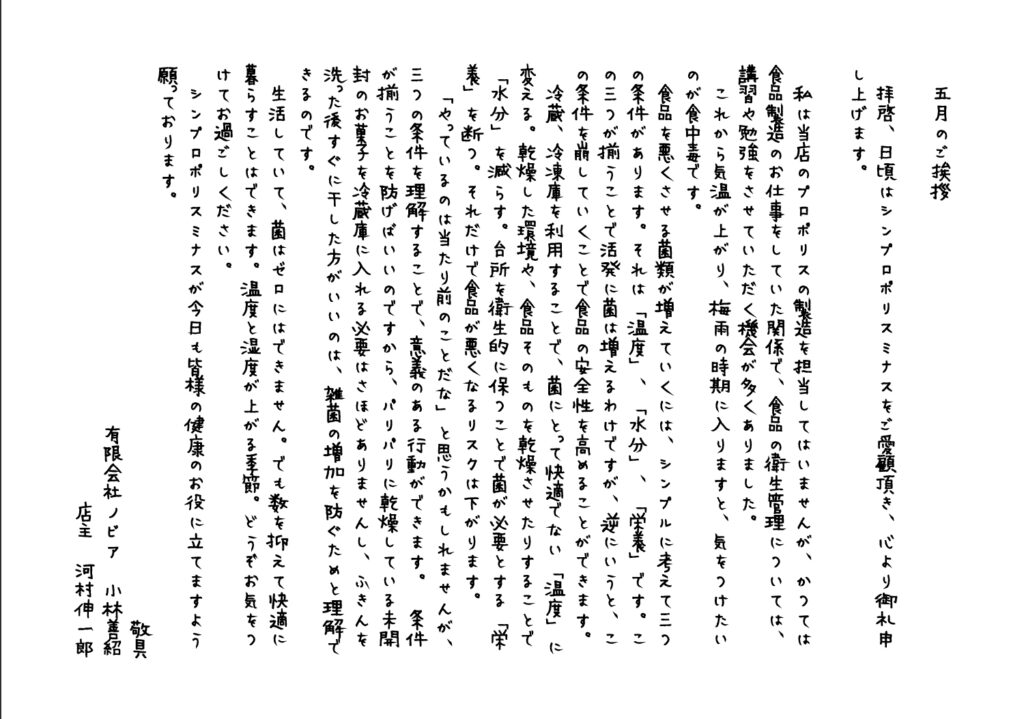 五月のご挨拶
拝啓、日頃はシンプロポリスミナスをご愛顧頂き、心より御礼申
し上げます。
私は当店のプロポリスの製造を担当してはいませんが、かつては
食品製造のお仕事をしていた関係で、食品の衛生管理については、
講習や勉強をさせていただく機会が多くありました。
これから気温が上がり、梅雨の時期に入りますと、気をつけたい
のが食中毒です。
食品を悪くさせる菌類が増えていくには、シンプルに考えて三つ
の条件があります。それは「温度」、「水分」、「栄養」です。こ
の三つが揃うことで活発に菌は増えるわけですが、逆にいうと、こ
の条件を崩していくことで食品の安全性を高めることができます。
冷蔵、冷凍庫を利用することで、菌にとって快適でない「温度」に
変える。乾燥した環境や、食品そのものを乾燥させたりすることで
「水分」を減らす。台所を衛生的に保つことで菌が必要とする「栄
養」を断つ。それだけで食品が悪くなるリスクは下がります。
「やっているのは当たり前のことだな」と思うかもしれませんが、
三つの条件を理解することで、意義のある行動ができます。 条件
が揃うことを防げばいいのですから、パリパリに乾燥している未開
封のお菓子を冷蔵庫に入れる必要はさほどありませんし、ふきんを
洗った後すぐに干した方がいいのは、雑菌の増加を防ぐためと理解で
きるのです。
生活していて、菌はゼロにはできません。でも数を抑えて快適に
暮らすことはできます。温度と湿度が上がる季節。どうぞお気をつ
けてお過ごしください。
シンプロポリスミナスが今日も皆様の健康のお役に立てますよう
願っております。
敬具
有限会社ノビア 小林善紹
店主 河村伸一郎